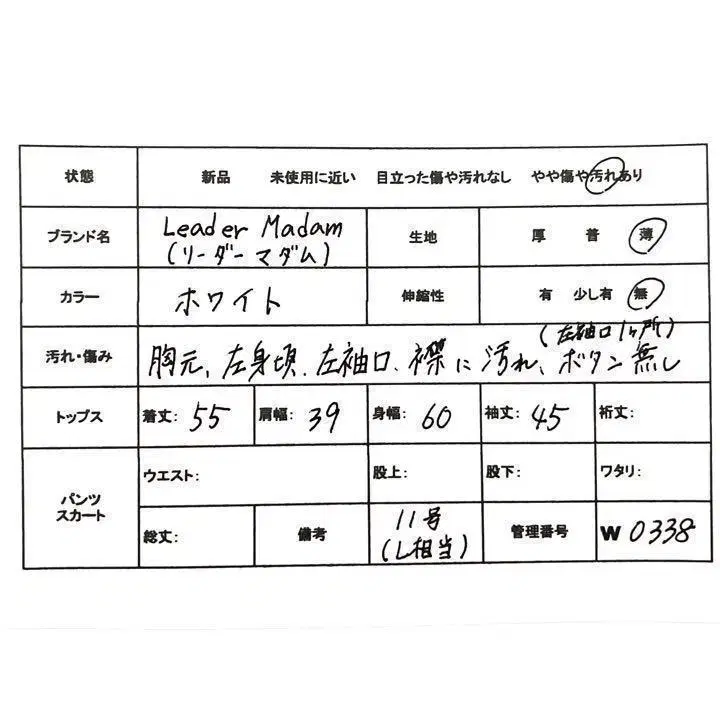 状態 新品 未使用に近い 目立った傷や汚れなし やや傷や汚れあり
ブランド名 Leader Madam 生地 厚 普 薄
(リーダーマダム)
カラー ホワイト 伸縮性 有 少し有 無
(左袖口1ヶ所)
汚れ・傷み 胸元、左身頃、左袖口、襟に汚れ、ボタン無し
トップス 着丈: 55 肩幅: 39 身幅: 60 袖丈: 45 裄丈:
パンツ
スカート
ウエスト: 股上: 股下: ワタリ:
総丈: 備考 11号 管理番号 W 0338
(L相当)